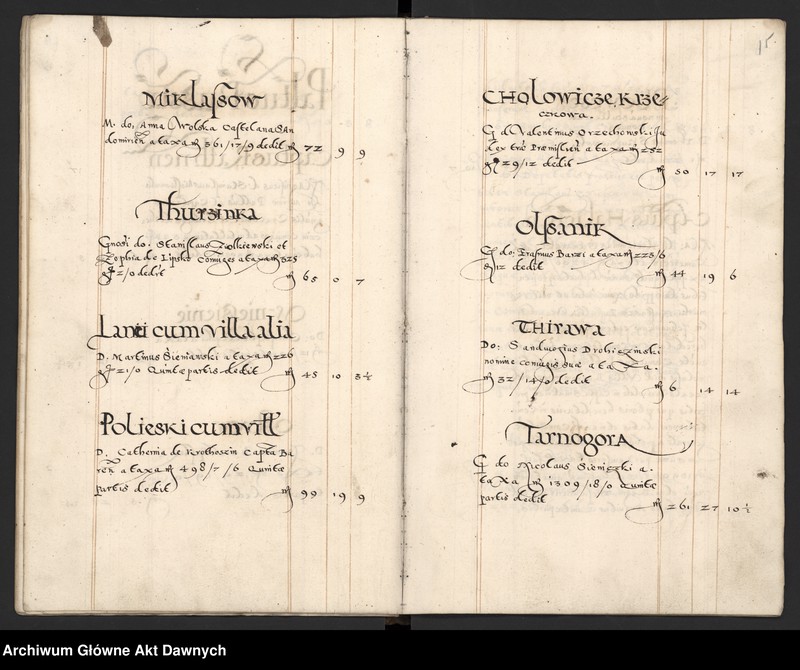 Miklassow
M. do. Anna Wolska Castelana San
domirien a taxa 361/17/9 dedit 72 9 9
Thurzinka
Gnosi do. Stanislaus Zolkiewski et
Zophia de Lipsko coniuges a taxa 325
2/0 dedit 65 0 7
Lanci cum villa alia
D. Martinus Sieniawski a taxa 226
21/0 Quintae partis dedit 45 10 3½
Polieski cum vill
D. Catherina de Krothoszin Capta Ba
ren a taxa 498/7/6 Quintae
partis dedit 99 19 9
15
Cholowicze, Krze-
czkowa.
G d Valentinus Orzechowski Ju
dex trae Praemislien a taxa 252
29/12 dedit
50 17 17
Olssanik
G do: Erasmus Barzi a taxa 223/6
12 dedit
44 19 6
Thirawa
Do: Sandivogius Drohiczinski
nomine coniugis suae a taxa.
32/14/0 dedit 6 14 14
Tarnogora
G do Nicolaus Sieniczki a.
taxa 1309/18/0 Quintae
partis dedit
261 27 10½
Archiwum Główne Akt Dawnych